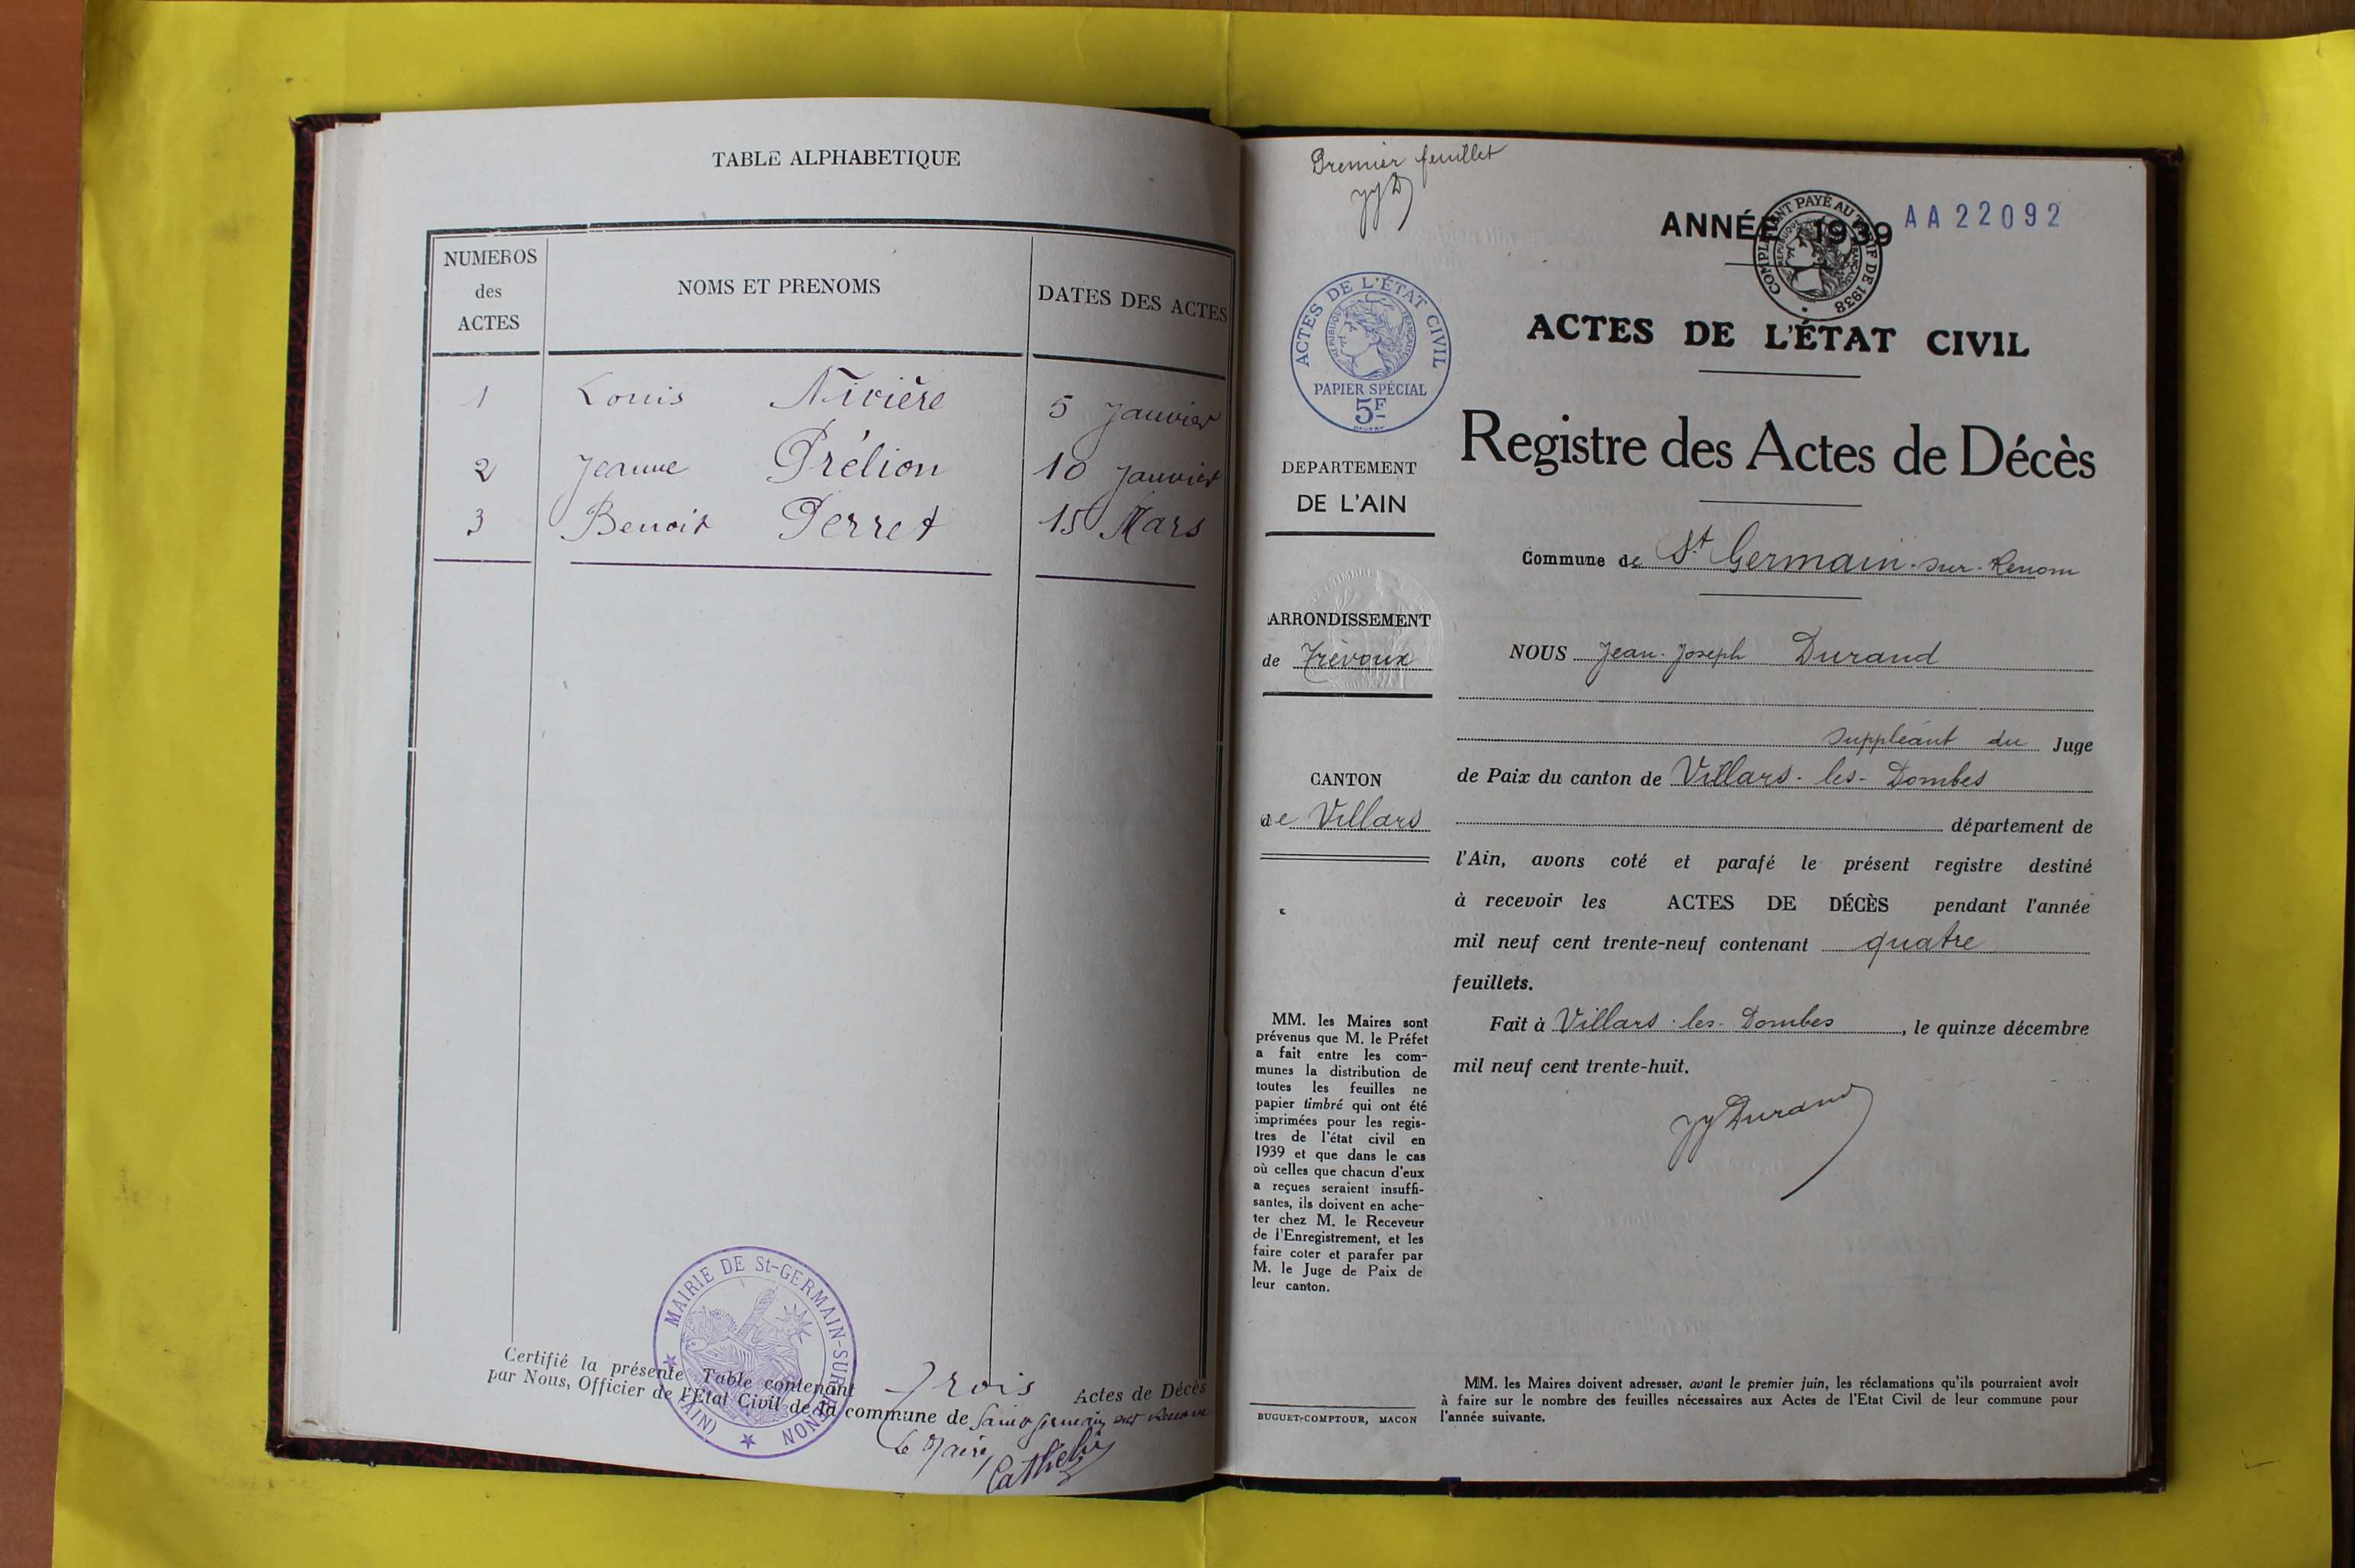 TABLE ALPHABETIQUE
NUMEROS
des
ACTES
NOMS ET PRENOMS
DATES DES ACTES
1 Louis Nivière 5 Janvier
2 Jeanne Prélion 10 Janvier
3 Benoit Perret 15 Mars
MAIRIE DE St-GERMAIN-SUR-RENON
(AIN)
Certifié la présente Table contenant Trois Actes de Décès
par Nous, Officier de l'Etat Civil de la commune de Saint Germain sur Renom
Le Maire,
Premier feuillet
JJD
ANNÉE 1939
COMPLEMENT PAYÉ AU TARIF DE 1938
REPUBLIQUE FRANÇAISE
AA22092
ACTES DE L'ÉTAT CIVIL
REPUBLIQUE FRANÇAISE
PAPIER SPÉCIAL
5F
ACTES DE L'ÉTAT CIVIL
Registre des Actes de Décès
DEPARTEMENT
DE L'AIN
ARRONDISSEMENT
de Trévoux
CANTON
de Villars
Commune de St Germain-sur-Renom
NOUS Jean-Joseph Durand
suppléant du Juge
de Paix du canton de Villars-les-Dombes
département de
l'Ain, avons coté et parafé le présent registre destiné
à recevoir les ACTES DE DÉCÈS pendant l'année
mil neuf cent trente-neuf contenant quatre
feuillets.
Fait à Villars-les-Dombes, le quinze décembre
mil neuf cent trente-huit.
JJDurand
MM. les Maires sont
prévenus que M. le Préfet
a fait entre les com-
munes la distribution de
toutes les feuilles ne
papier timbré qui ont été
imprimées pour les regis-
tres de l'état civil en
1939 et que dans le cas
où celles que chacun d'eux
a reçues seraient insuffi-
santes, ils doivent en ache-
ter chez M. le Receveur
de l'Enregistrement, et les
faire coter et parafer par
M. le Juge de Paix de
leur canton.
BUGUET-COMPTOUR, MACON
MM. les Maires doivent adresser, avant le premier juin, les réclamations qu'ils pourraient avoir
à faire sur le nombre des feuilles nécessaires aux Actes de l'Etat Civil de leur commune pour
l'année suivante.